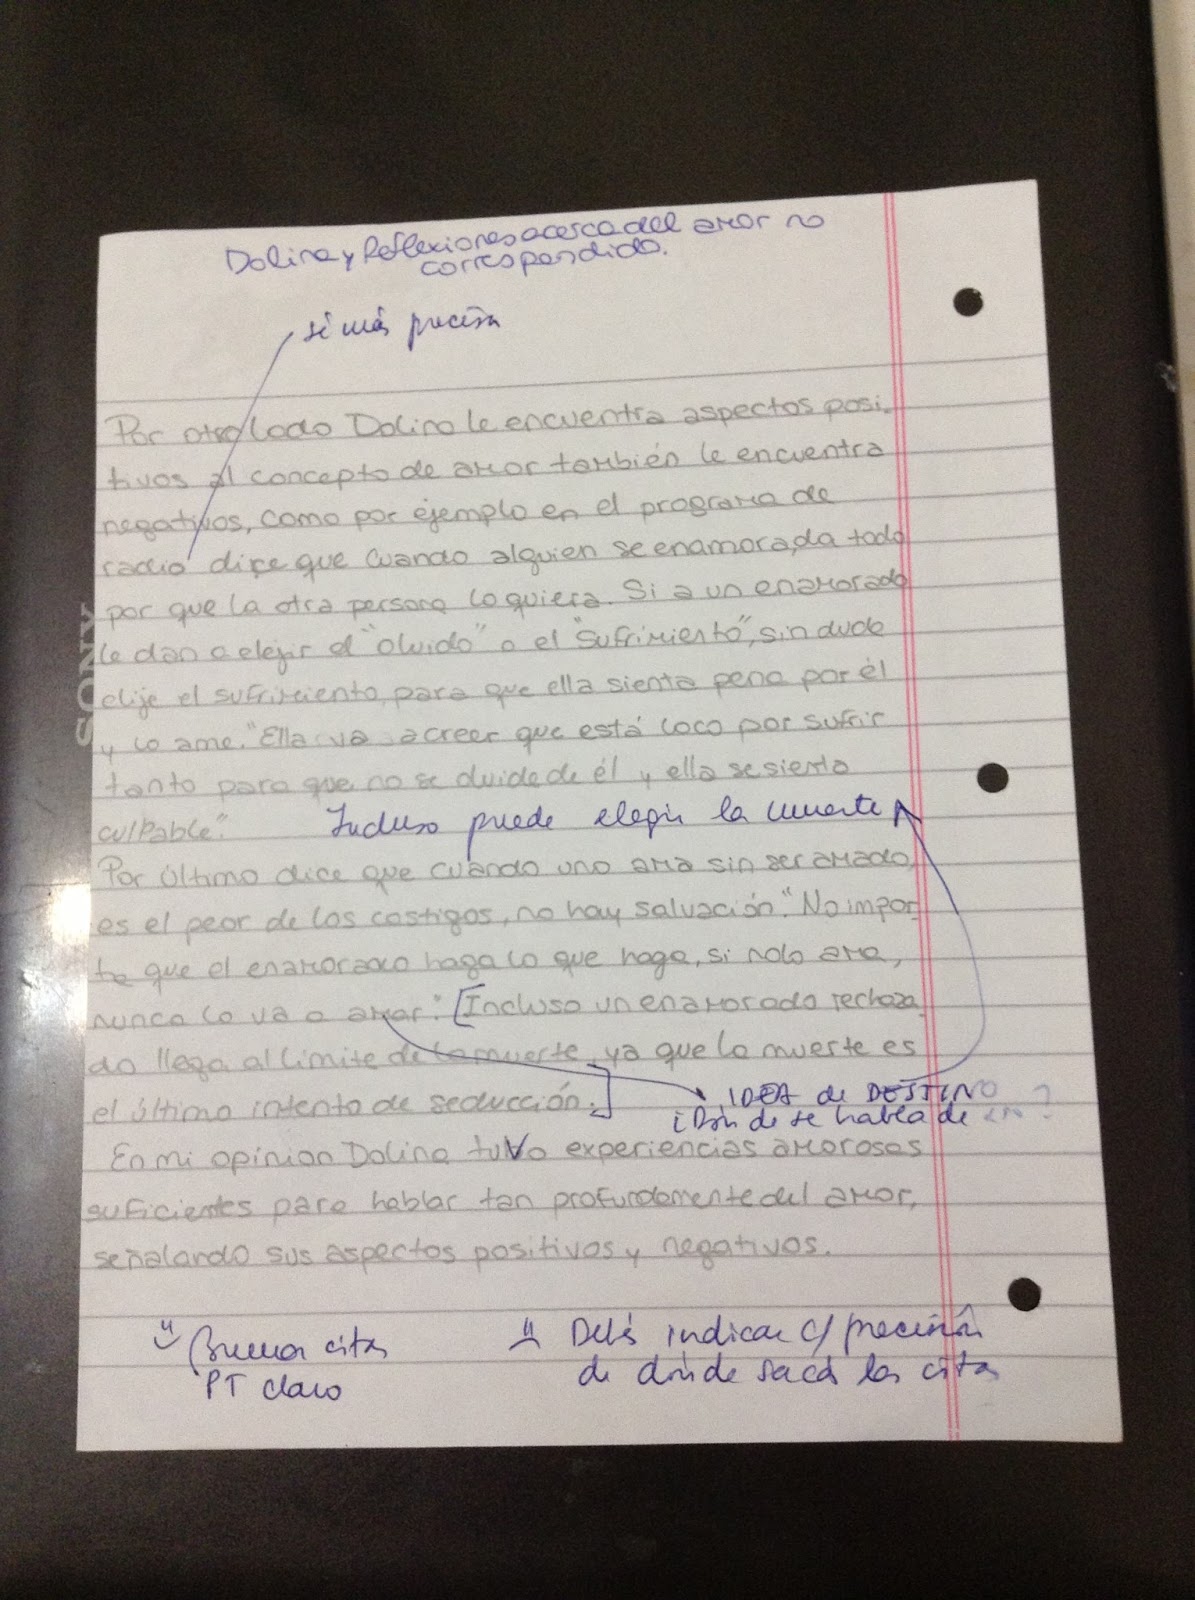 Dolina y Reflexiones acerca del amor no
correspondido.
sé más precisa
Por otro lado Dolina le encuentra aspectos posi-
tivos al concepto de amor también le encuentra
negativos, como por ejemplo en el programa de
radio dice que cuando alguien se enamora, da todo
por que la otra persona lo quiera. Si a un enamorado
le dan a elejir el "olvido" o el "sufrimiento", sin duda
elije el sufrimiento, para que ella sienta pena por él
y lo ame. "Ella va a creer que está loco por sufrir
tanto para que no se olvide de él y ella se sienta
culpable".
Incluso puede elegir la muerte
Por último dice que cuando uno ama sin ser amado,
es el peor de los castigos, no hay salvación. "No impor
ta que el enamorado haga lo que haga, si no lo ama,
nunca lo va a amar". [Incluso un enamorado rechaza
do llega al límite de la muerte, ya que la muerte es
el último intento de seducción.]
IDEA de DESTINO
¿Dónde se habla de ?
En mi opinion Dolina tuvo experiencias amorosas
suficientes para hablar tan profundamente del amor,
señalando sus aspectos positivos y negativos.
Buena cita
PT claro
Debés indicar c/ precisión
de dónde sacás las citas
SONY